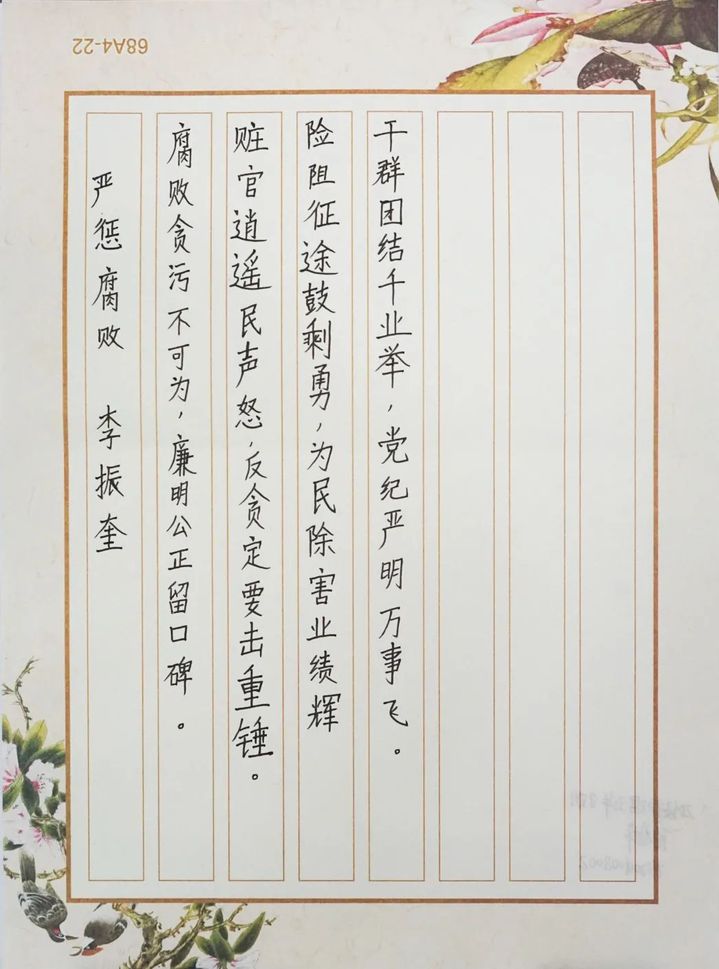 68A4-22
严惩腐败 李振奎
腐败贪污不可为，廉明公正留口碑。
赃官逍遥民声怒，反贪定要击重锤。
险阻征途鼓剩勇，为民除害业绩辉
干群团结千业举，党纪严明万事飞。